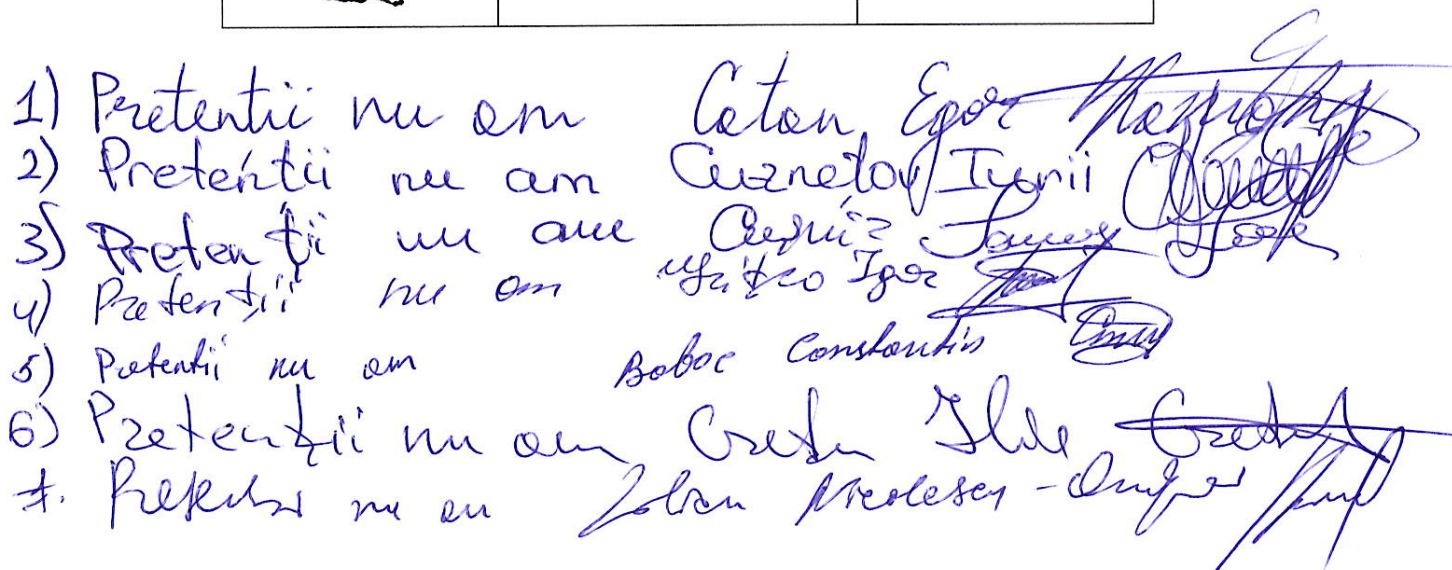 1) Pretentii nu am Catan Egor
2) Pretentii nu am Cuznetov Iurii
3) Pretenții nu am
4) Pretenții nu am Igor
5) Pretentii nu am Boboc Constantin
6) Pretenții nu am Cretu Ilie Cretu
7. nu am Zolian Nicolescu-